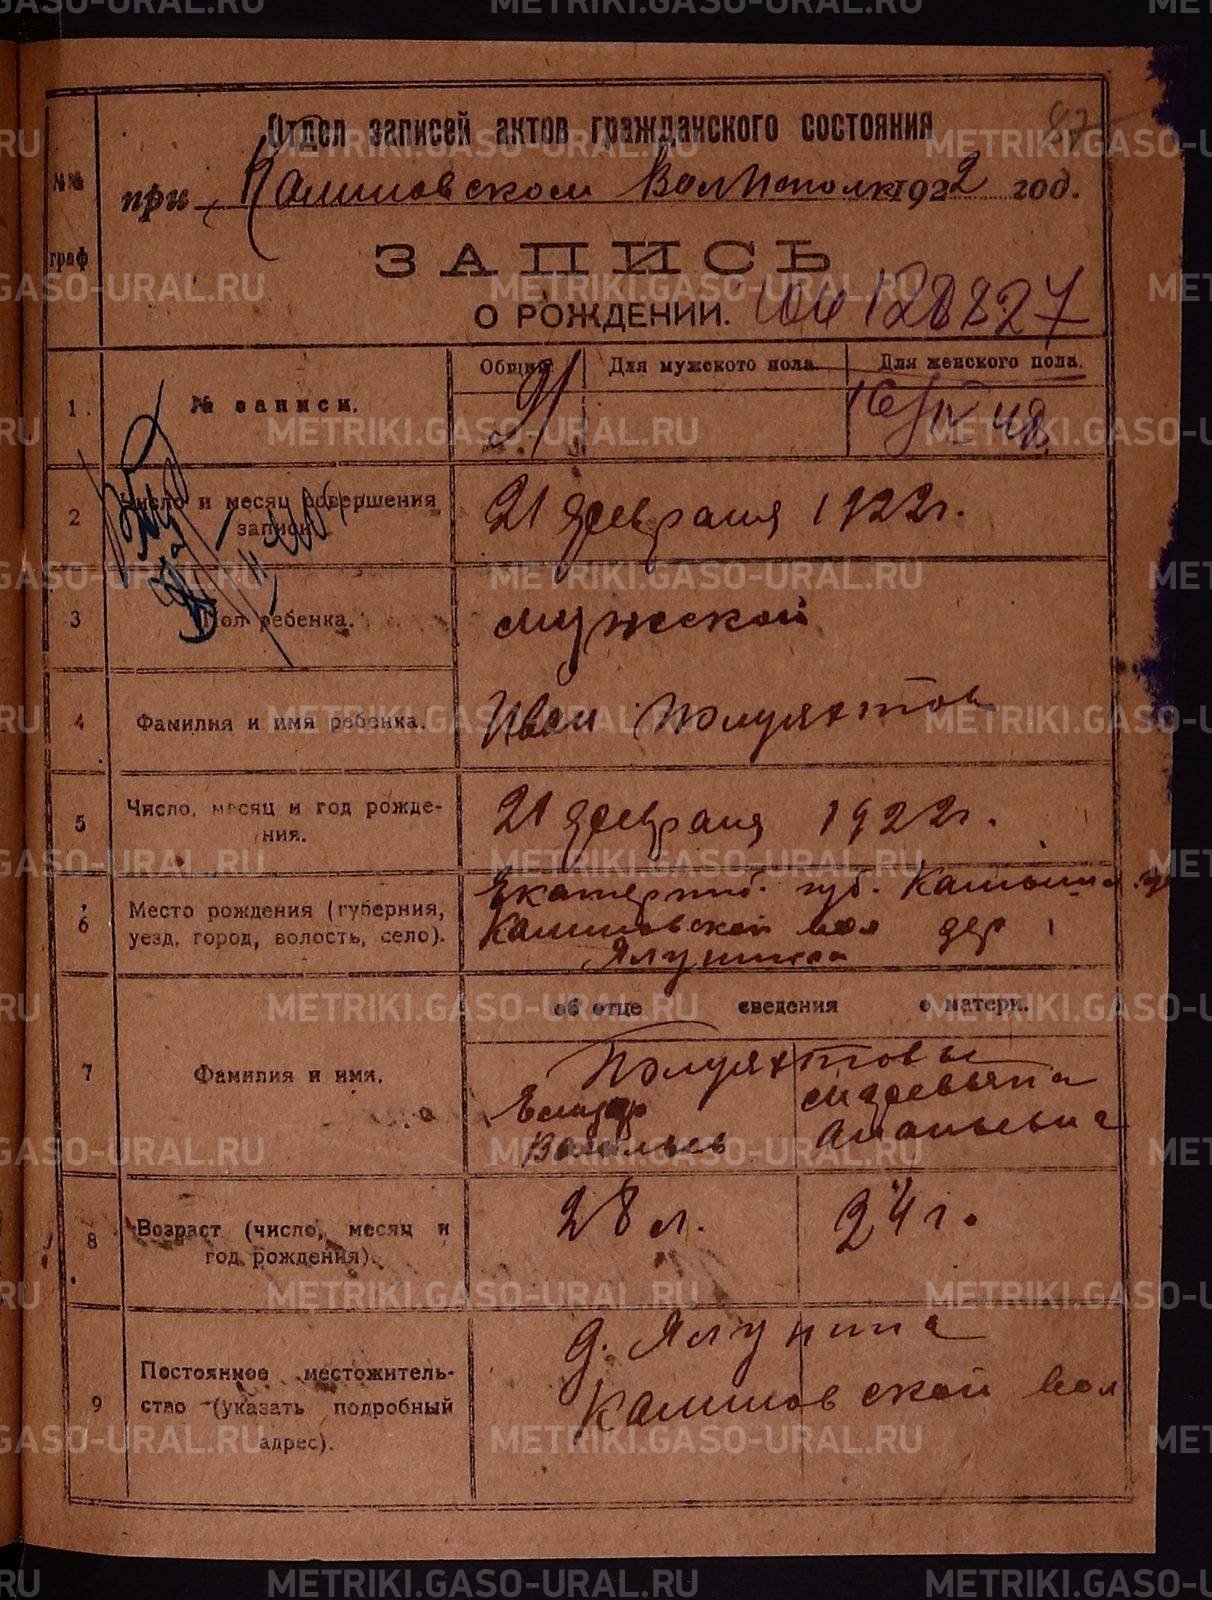 Отдел записей актов гражданского состояния
87
№№ граф
при Калиновском Волисполк. 1922 год.
ЗАПИСЬ
О РОЖДЕНИИ.
128827
Общий. Для мужского пола. Для женского пола.
1 № записи. 91 16/IV 48
2 Число и месяц совершения записи. 21 февраля 1922 г.
3 Пол ребенка. мужской
4 Фамилия и имя ребенка. Иван Полуяхтов
5 Число, месяц и год рождения. 21 февраля 1922 г.
6 Место рождения (губерния, уезд, город, волость, село).
Екатеринб. губ. Камышл. у.
Калиновской вол дер
Ялунина
об отце сведения о матери.
7 Фамилия и имя.
Полуяхтовы
Васильев Ананьевна
8 Возраст (число, месяц и год рождения). 28 л. 24 г.
9 Постоянное местожительство (указать подробный адрес).
д. Ялунина
Калиновской вол
METRIKI.GASO-URAL.RU